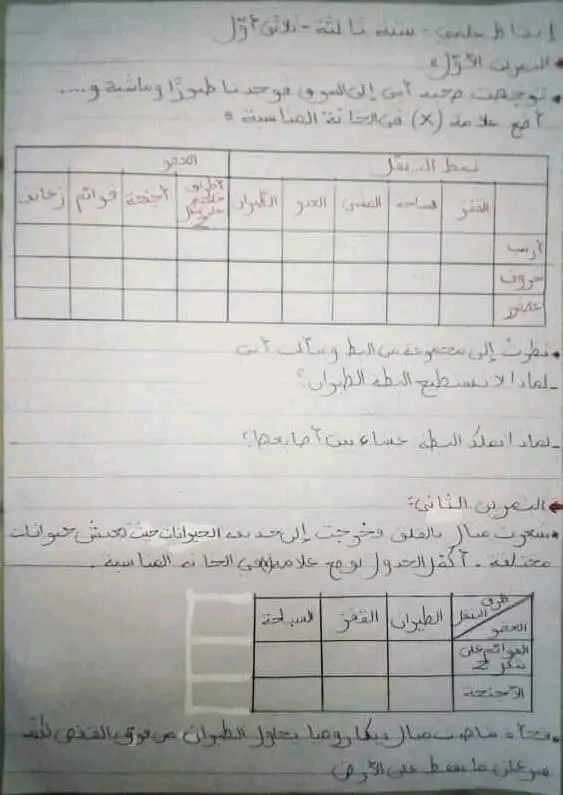 إيقاظ علمي - سنة ثالثة - ثلاثي أوّل
التمرين الأوّل
توجهت صحبة أبي إلى السوق فوجدنا طيورًا وماشية و....
أضع علامة (X) في الخانة المناسبة :
نمط التنقل العضو
القفز سباحة المشي العدو الطيران أطراف خلفية على شكل Z أجنحة قوائم زعانف
أرنب
خروف
عصفور
نظرت إلى مجموعة من البط وسألت أبي
- لماذا لا تستطيع البطة الطيران؟
- لماذا تملك البطة غشاء بين أصابعها؟
التمرين الثاني:
شعرت منال بالقلق فخرجت إلى حديقة الحيوانات حيث تعيش حيوانات
مختلفة . أكمل الجدول بوضع علامة في الخانة المناسبة .
طرق التنقل العضو الطيران القفز السباحة
القوائم على شكل Z
الأجنحة
فجأة شاهدت منال يحاول الطيران من فوق القفص
سرعان ما سقط على الأرض